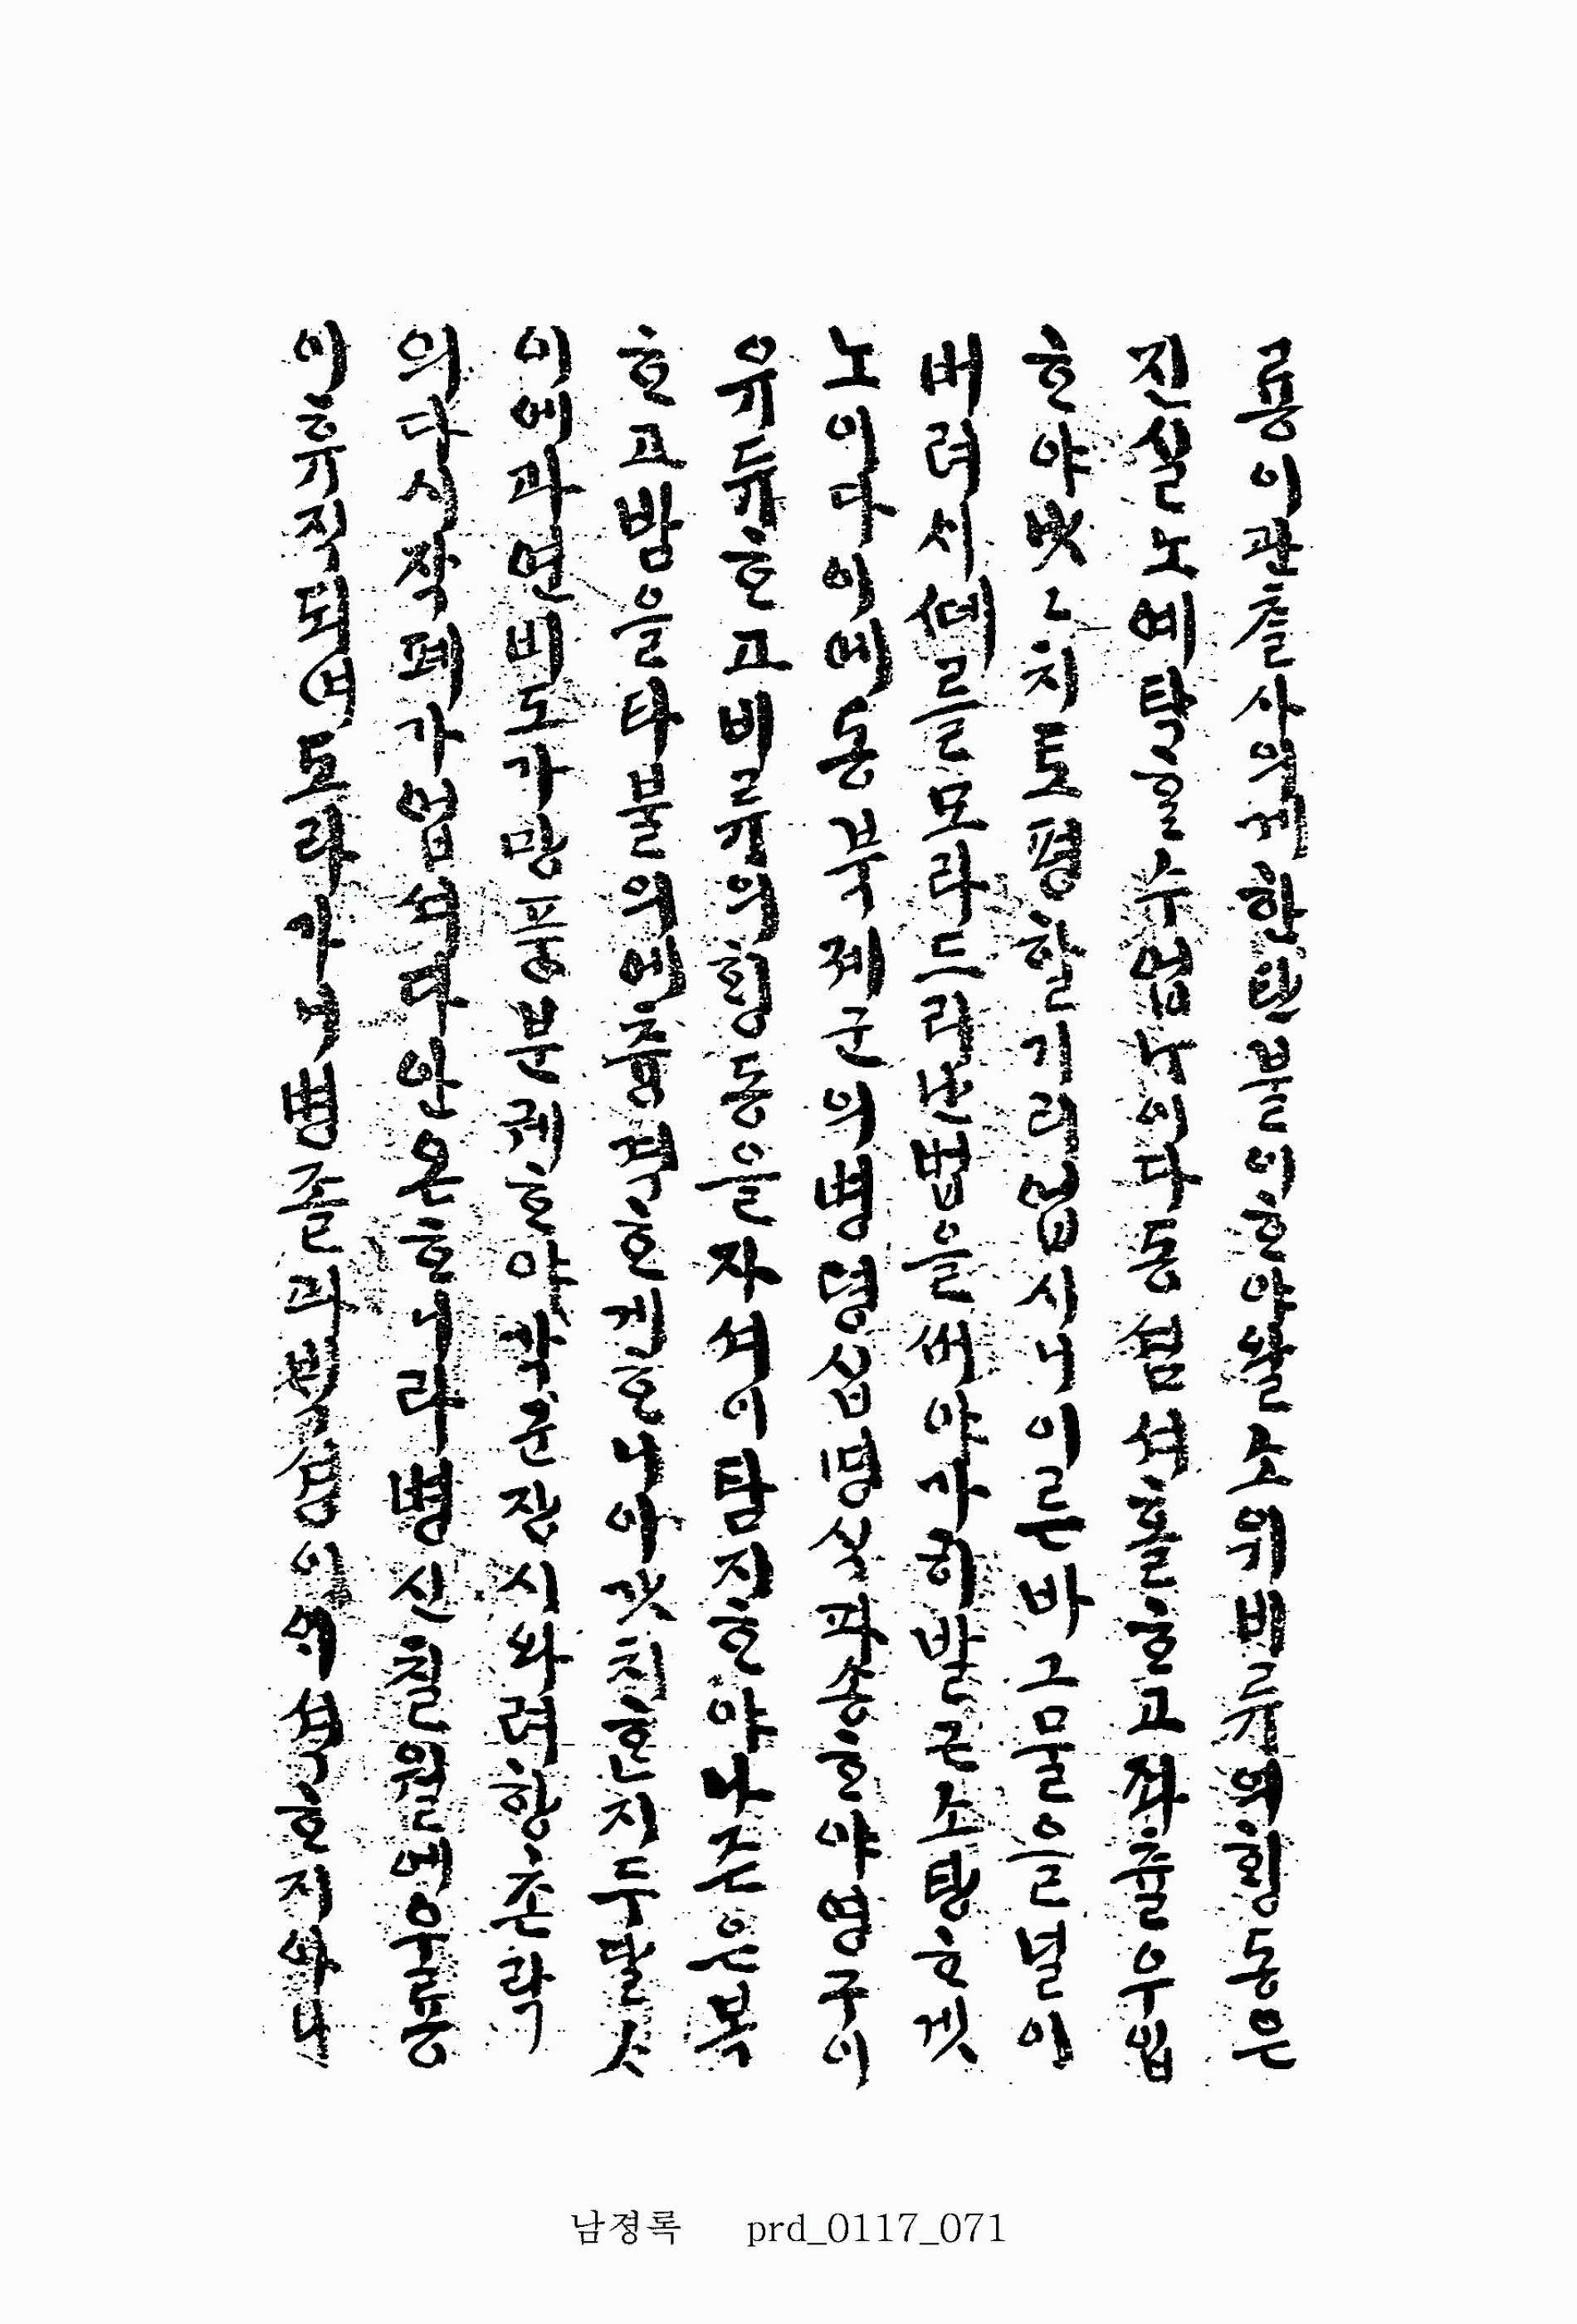 룡이관츌사의게한탄불이ᄒᆞ야왈소위비류의횡동은
진실노예탁ᄒᆞᆯ수업ᄂᆞ이다동셤셔홀ᄒᆞ고좌츌우입
ᄒᆞ야ᄭᅳᆺᄭᅳᆺ치토평할기리업시니이른바그물을널이
버려시ᄯᅦ를모라드리난법을쎠야가히발근소탕ᄒᆞ겟
노이다이에동북졔군의병뎡십명식파송ᄒᆞ야영구이
유듀ᄒᆞ고비류의횡동을자셔이탐지ᄒᆞ야나즌은복
ᄒᆞ고밤을타불의에츙격ᄒᆞ게ᄒᆞ니이갓치ᄒᆞᆫ지두달ᄉᆞ
이에과연비도가망풍분궤ᄒᆞ야각군잠시와려항촌락
의다시작폐가업셔다안온ᄒᆞ니라병신칠월에우룡
이휴직되여도라가ᄆᆡ병졸과ᄇᆡᆨ셩이의셕ᄒᆞ지아니
남졍록 prd_0117_071